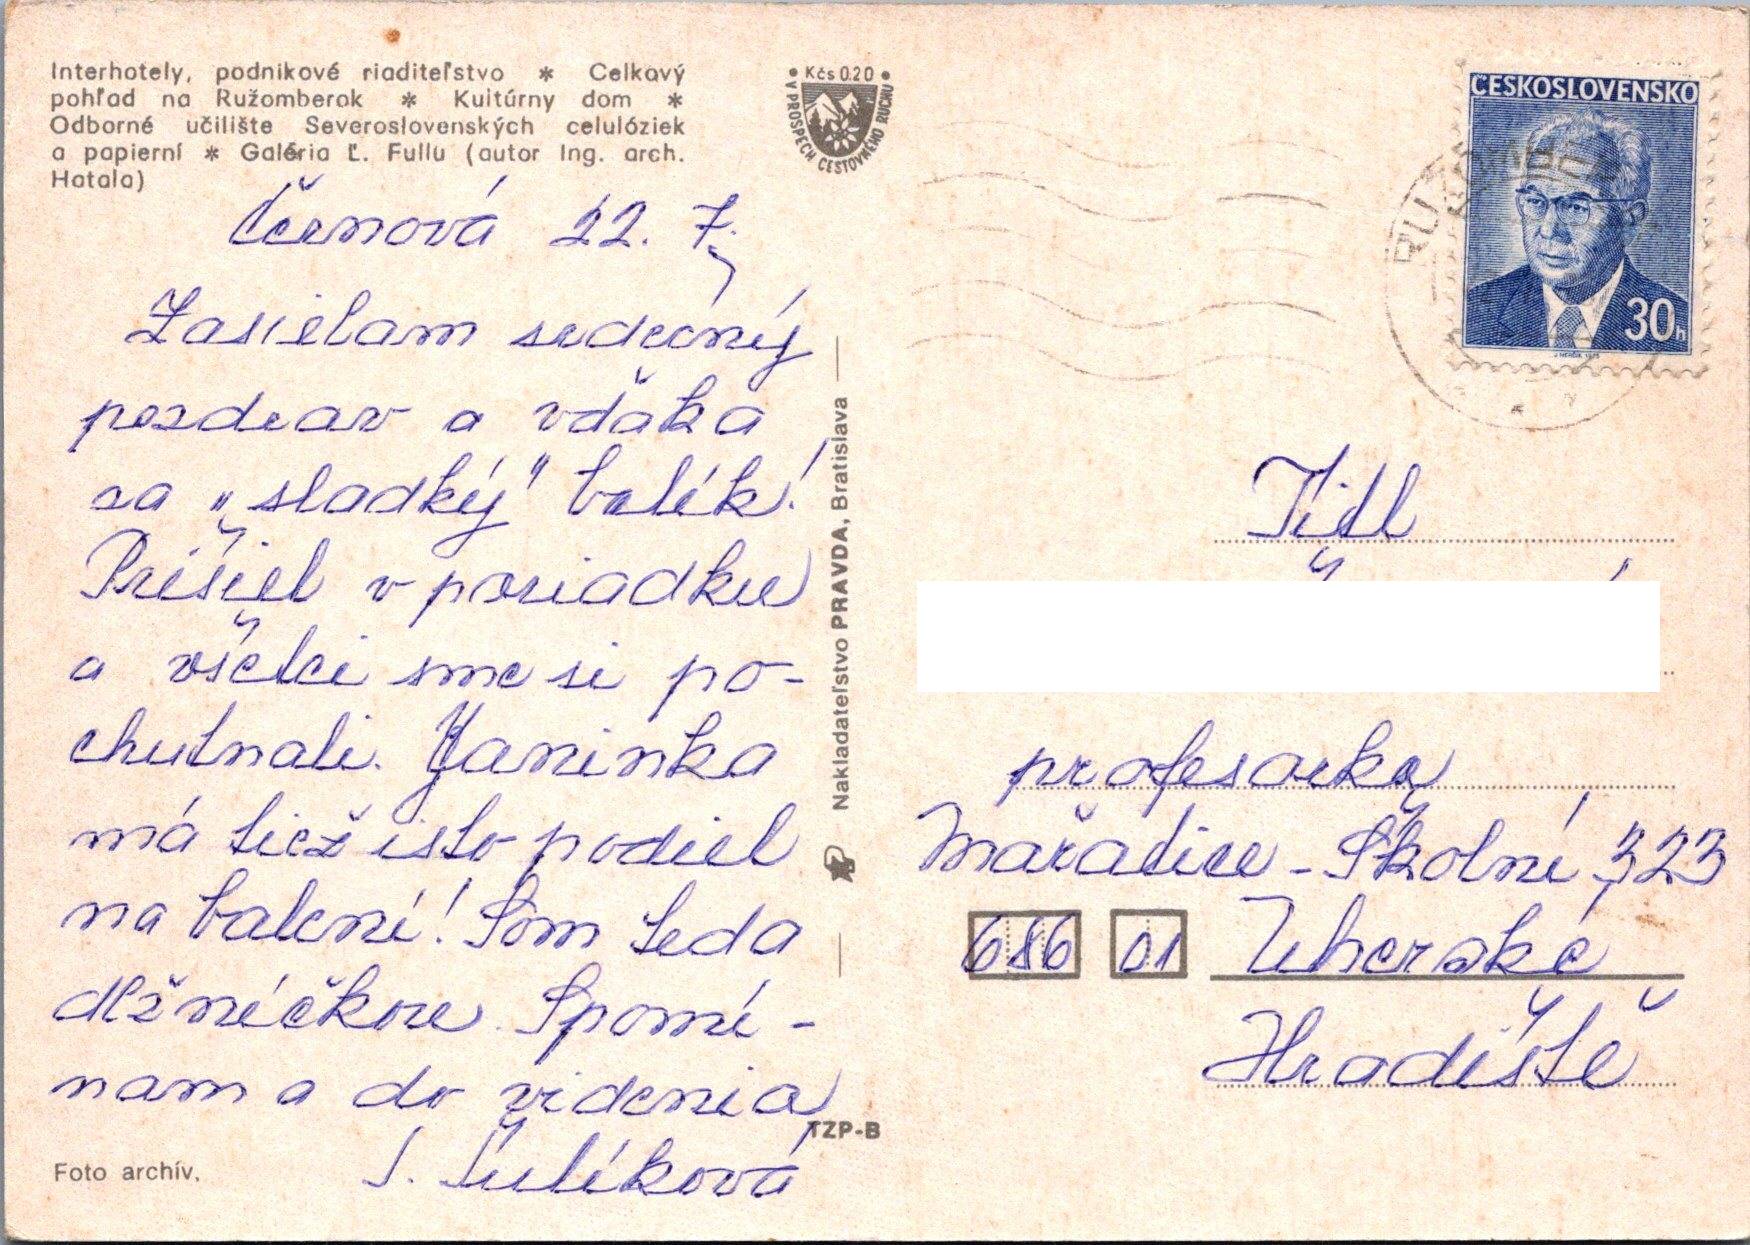 Interhotely, podnikové riaditeľstvo * Celkový
pohľad na Ružomberok * Kultúrny dom *
Odborné učilište Severoslovenských celulóziek
a papierní * Galéria Ľ. Fullu (autor Ing. arch.
Hatala)
Kčs 0.20
V PROSPECH CESTOVNÉHO RUCHU
ČESKOSLOVENSKO
30h
Černová 22. 7.
Zasielam srdečný
pozdrav a vďaka
za „sladký" balík!
Prišiel v poriadku
a všetci sme si po-
chutnali. Janinka
má tiež isto podiel
na balení! Som teda
dlžníčkou. Spomí-
nam a do videnia
Š. Šulíková
Foto archív.
TZP-B
Nakladateľstvo PRAVDA, Bratislava
profesorka
Mařatice - Školní 323
686 01 Uherské
Hradiště